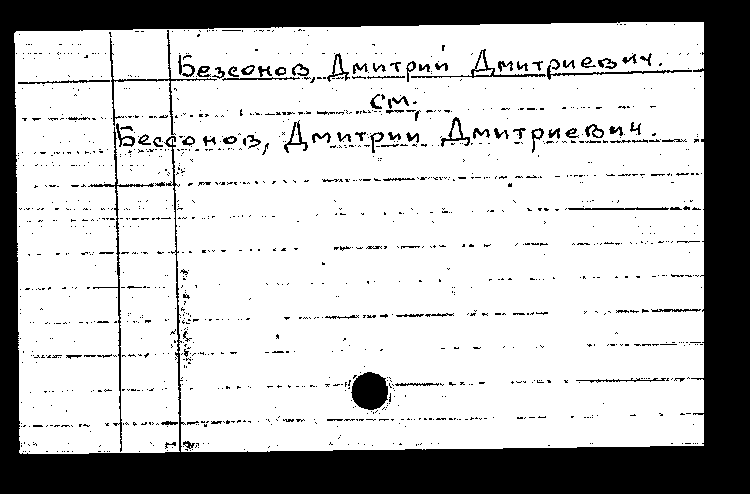 Безсонов, Дмитрий Дмитриевич.
см.
Бессонов, Дмитрий Дмитриевич.